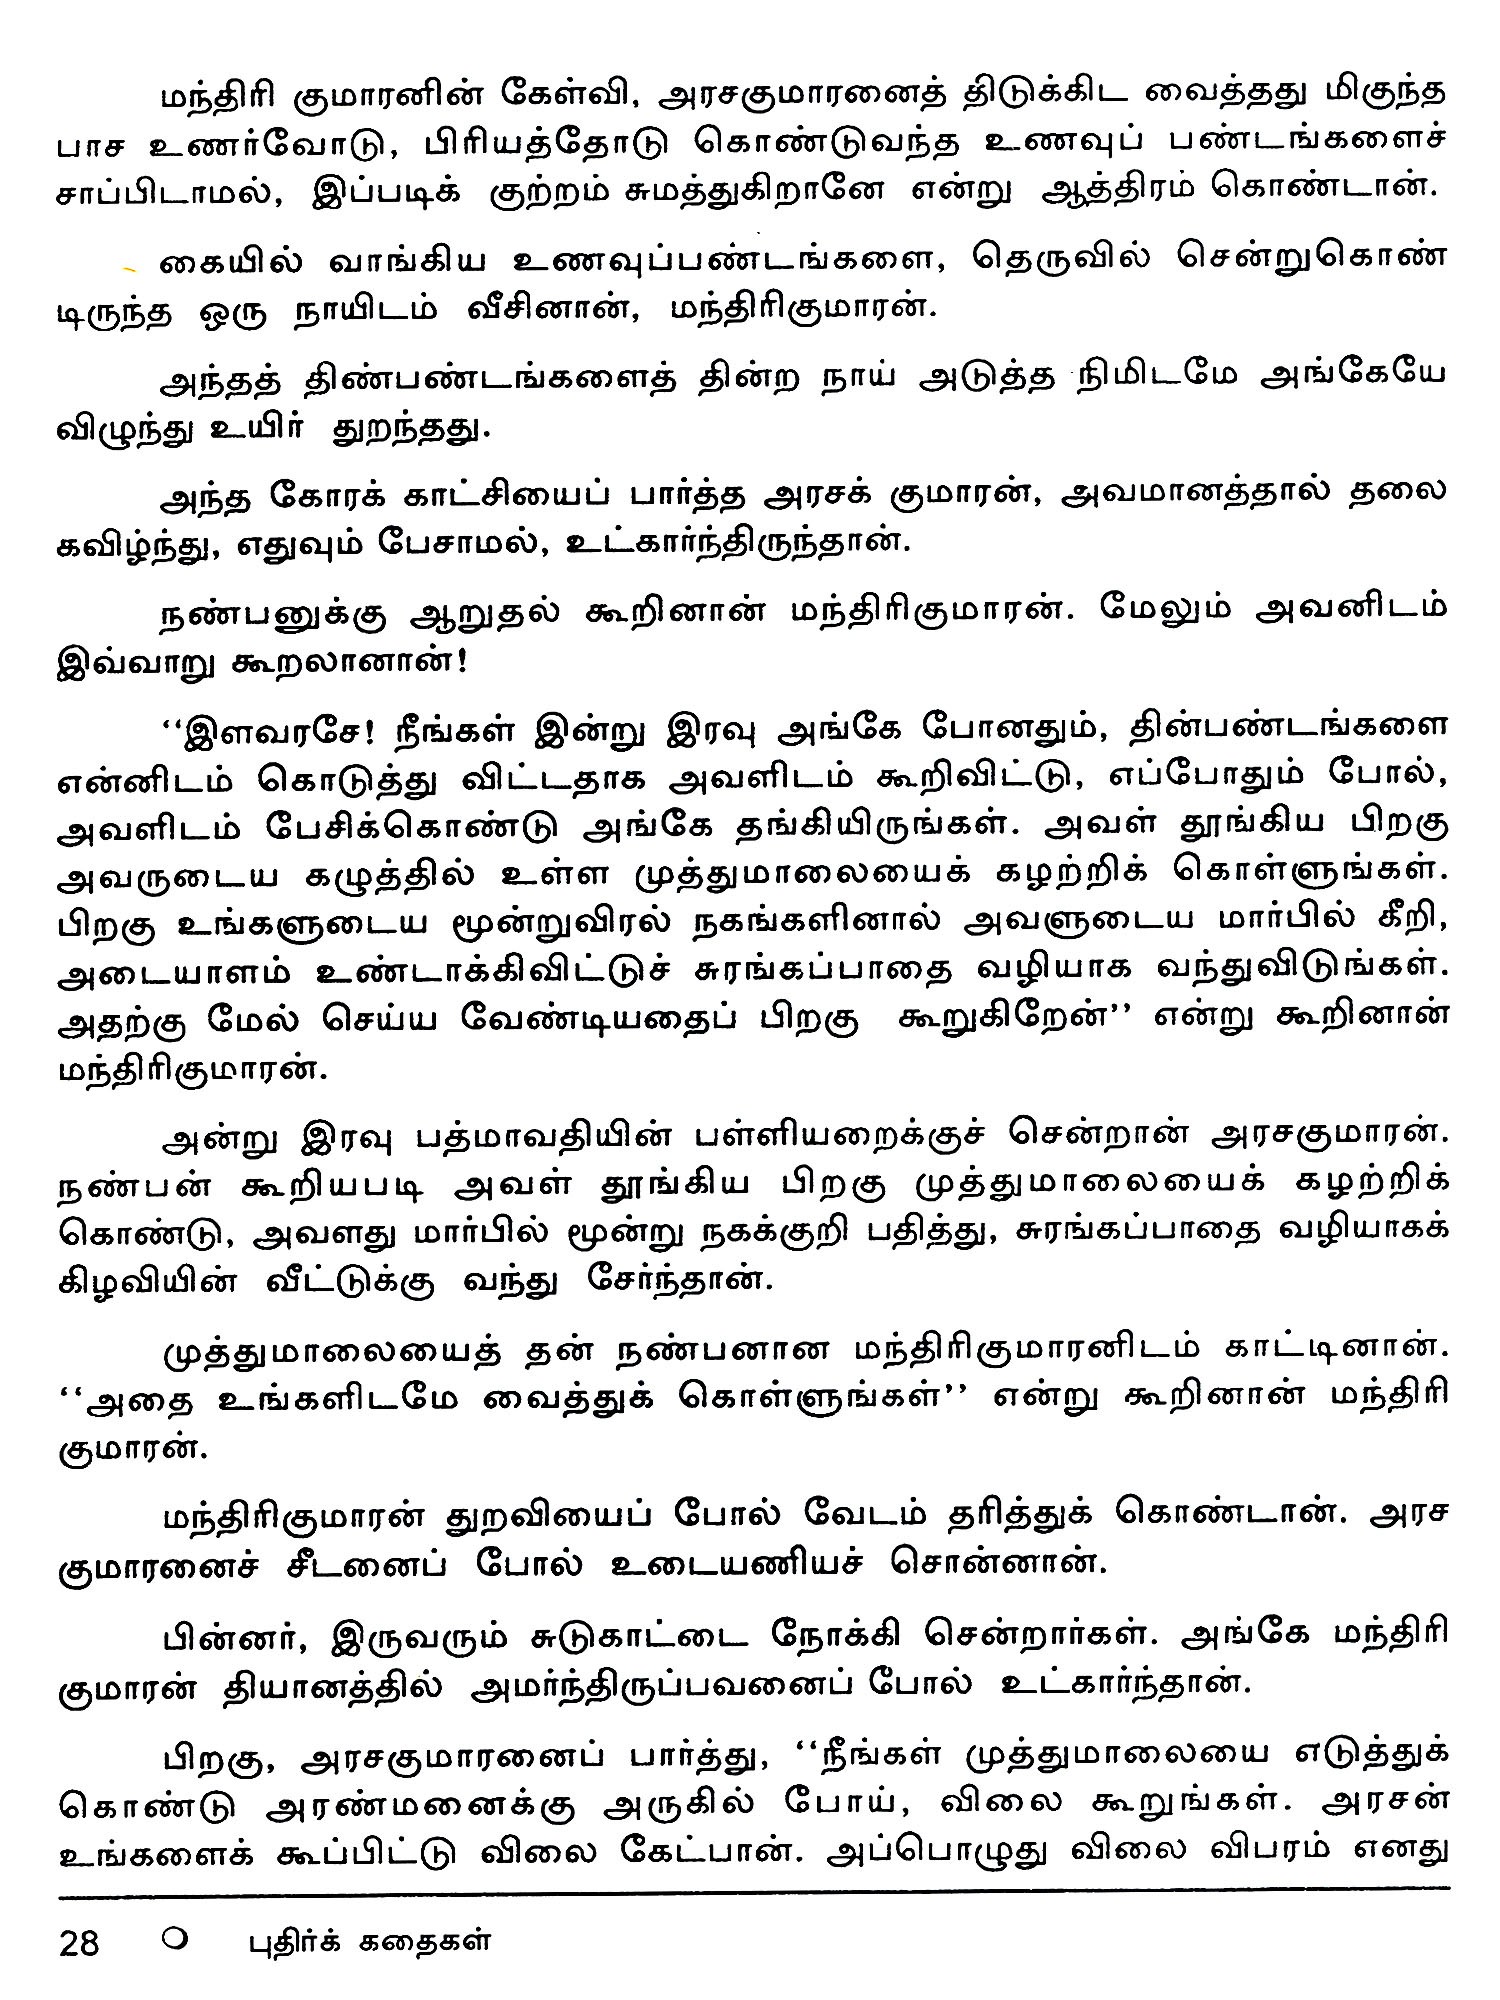 மந்திரி குமாரனின் கேள்வி, அரசகுமாரனைத் திடுக்கிட வைத்தது மிகுந்த
பாச உணர்வோடு, பிரியத்தோடு கொண்டுவந்த உணவுப் பண்டங்களைச்
சாப்பிடாமல், இப்படிக் குற்றம் சுமத்துகிறானே என்று ஆத்திரம் கொண்டான்.
கையில் வாங்கிய உணவுப்பண்டங்களை, தெருவில் சென்றுகொண்
டிருந்த ஒரு நாயிடம் வீசினான், மந்திரிகுமாரன்.
அந்தத் திண்பண்டங்களைத் தின்ற நாய் அடுத்த நிமிடமே அங்கேயே
விழுந்து உயிர் துறந்தது.
அந்த கோரக் காட்சியைப் பார்த்த அரசக் குமாரன், அவமானத்தால் தலை
கவிழ்ந்து, எதுவும் பேசாமல், உட்கார்ந்திருந்தான்.
நண்பனுக்கு ஆறுதல் கூறினான் மந்திரிகுமாரன். மேலும் அவனிடம்
இவ்வாறு கூறலானான்!
‘‘இளவரசே! நீங்கள் இன்று இரவு அங்கே போனதும், தின்பண்டங்களை
என்னிடம் கொடுத்து விட்டதாக அவளிடம் கூறிவிட்டு, எப்போதும் போல்,
அவளிடம் பேசிக்கொண்டு அங்கே தங்கியிருங்கள். அவள் தூங்கிய பிறகு
அவருடைய கழுத்தில் உள்ள முத்துமாலையைக் கழற்றிக் கொள்ளுங்கள்.
பிறகு உங்களுடைய மூன்றுவிரல் நகங்களினால் அவளுடைய மார்பில் கீறி,
அடையாளம் உண்டாக்கிவிட்டுச் சுரங்கப்பாதை வழியாக வந்துவிடுங்கள்.
அதற்கு மேல் செய்ய வேண்டியதைப் பிறகு கூறுகிறேன்’’ என்று கூறினான்
மந்திரிகுமாரன்.
அன்று இரவு பத்மாவதியின் பள்ளியறைக்குச் சென்றான் அரசகுமாரன்.
நண்பன் கூறியபடி அவள் தூங்கிய பிறகு முத்துமாலையைக் கழற்றிக்
கொண்டு, அவளது மார்பில் மூன்று நகக்குறி பதித்து, சுரங்கப்பாதை வழியாகக்
கிழவியின் வீட்டுக்கு வந்து சேர்ந்தான்.
முத்துமாலையைத் தன் நண்பனான மந்திரிகுமாரனிடம் காட்டினான்.
‘‘அதை உங்களிடமே வைத்துக் கொள்ளுங்கள்’’ என்று கூறினான் மந்திரி
குமாரன்.
மந்திரிகுமாரன் துறவியைப் போல் வேடம் தரித்துக் கொண்டான். அரச
குமாரனைச் சீடனைப் போல் உடையணியச் சொன்னான்.
பின்னர், இருவரும் சுடுகாட்டை நோக்கி சென்றார்கள். அங்கே மந்திரி
குமாரன் தியானத்தில் அமர்ந்திருப்பவனைப் போல் உட்கார்ந்தான்.
பிறகு, அரசகுமாரனைப் பார்த்து, ‘‘நீங்கள் முத்துமாலையை எடுத்துக்
கொண்டு அரண்மனைக்கு அருகில் போய், விலை கூறுங்கள். அரசன்
உங்களைக் கூப்பிட்டு விலை கேட்பான். அப்பொழுது விலை விபரம் எனது
28 ○ புதிர்க் கதைகள்